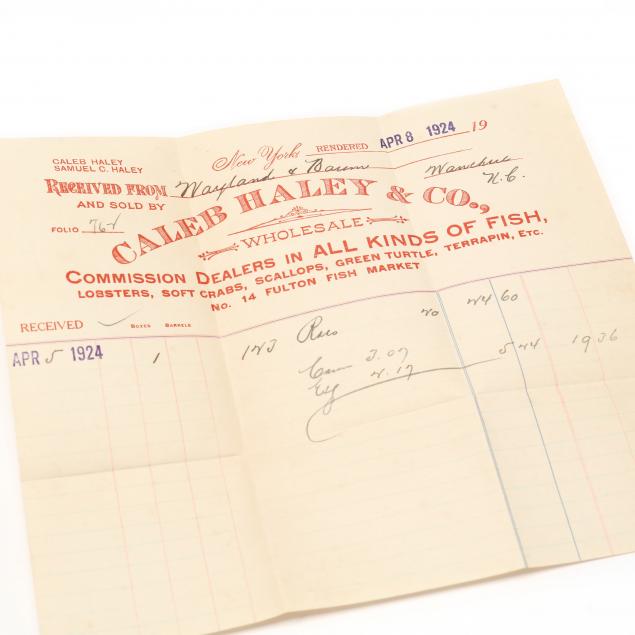 CALEB HALEY
SAMUEL C. HALEY
New York RENDERED APR 8 1924 19
RECEIVED FROM Wayland & Baum Wanchese N.C.
AND SOLD BY
FOLIO 764
CALEB HALEY & CO.,
WHOLESALE
COMMISSION DEALERS IN ALL KINDS OF FISH,
LOBSTERS, SOFT CRABS, SCALLOPS, GREEN TURTLE, TERRAPIN, ETC.
No. 14 FULTON FISH MARKET
RECEIVED BOXES BARRELS
APR 5 1924 1 123 20 24 60
3.07
2.17 5 24 19 36